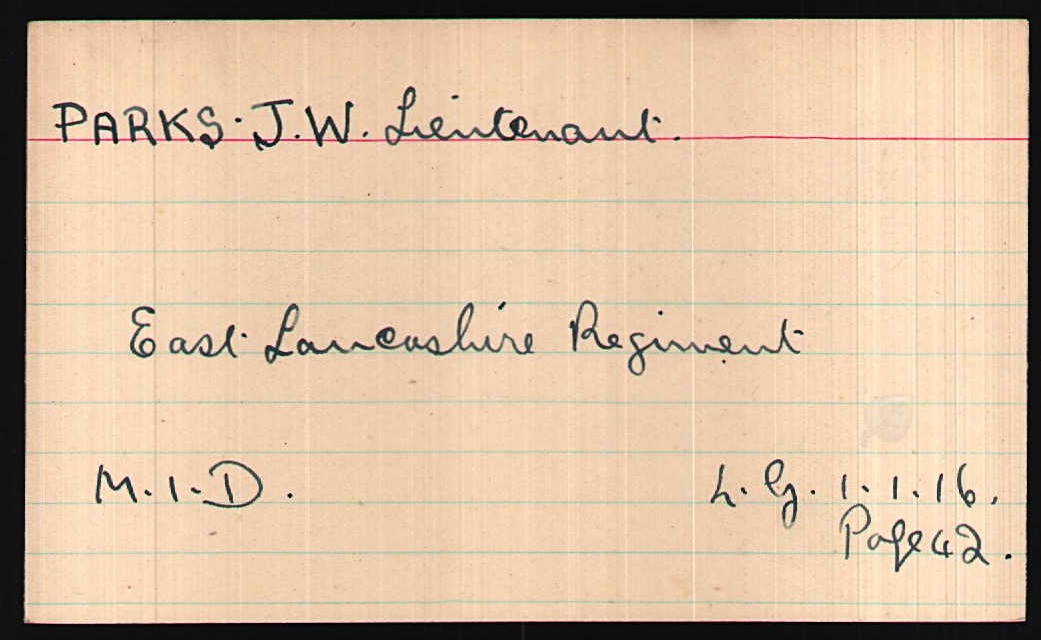 PARKS. J.W. Lieutenant.
East Lancashire Regiment
M.I.D.
L.G. 1.1.16.
Page 42.